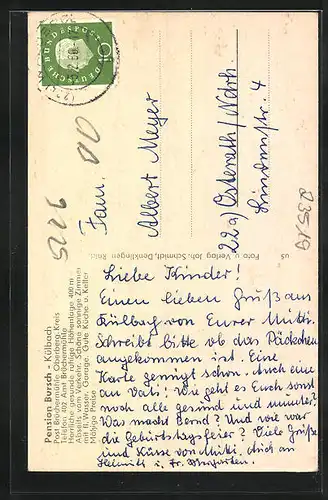 DEUTSCHE BUNDESPOST
10
Fam.
Albert Meyer
22a) Osterath/Ndrh.
Lindenstr. 4
5226
Pension Bursch - Külbach
Post Brüchermühle Oberberg. Kreis
Telefon 402 Amt Brüchermühle
Herrliche gesunde ruhige Höhenlage 400 m
Abseits vom Verkehr. Schöne sonnige Zimmer
mit fl. Wasser. Garage. Gute Küche u. Keller
Mäßige Preise
Foto u. Verlag Joh. Schmidt, Denklingen Rhld.
Liebe Kinder!
Einen lieben Gruß aus
Külbach von Eurer Mutti.
Schreibt bitte ob das Päckchen
angekommen ist. Eine
Karte genügt schon. Auch eine
an Vati! Wie geht es Euch sonst
noch alle gesund und munter?
Was macht Bernd? Und wie war
die Geburtstagsfeier? Viele Grüße
und Küsse von Mutti. Auch an
Helmuth u. Fr.